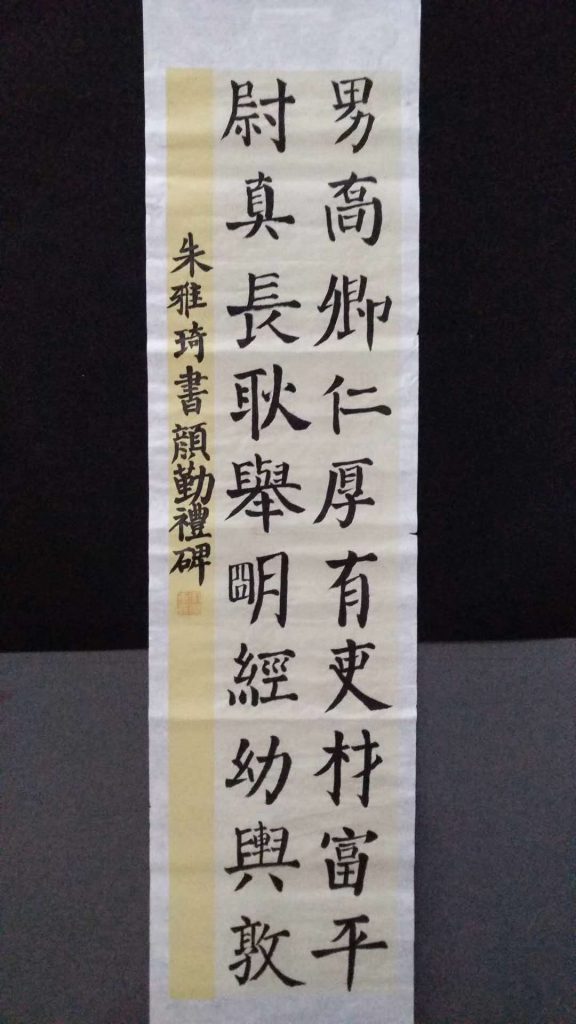 男喬卿仁厚有吏材富平
尉真長耿舉明經幼輿敦
朱雅琦書顏勤禮碑